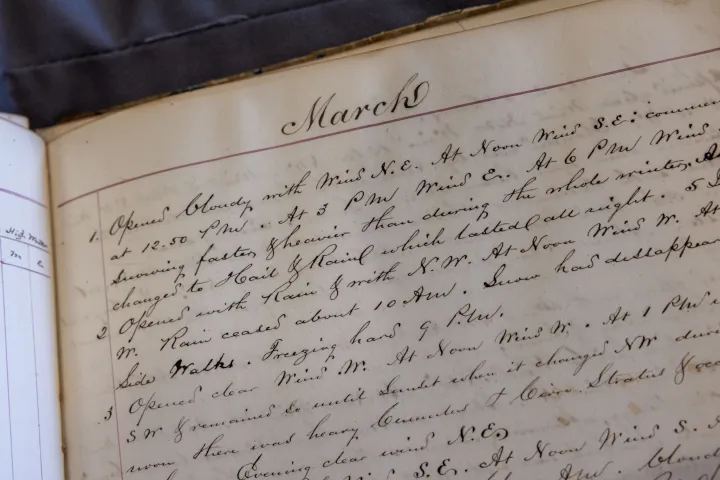 High Water
m e
March
1. Opened Cloudy with Wind N.E. At Noon Wind S.E: commen
at 12.50 P.M. At 3 P.M Wind E. At 6 P M Wind
Snowing faster & heavier than during the whole winter,
changed to Hail & Rain which lasted all night. 5
2 Opened with Rain & with N.W. At Noon Wind W. At
W. Rain ceased about 10 AM. Snow had dissappear
Side Walks. Freezing hard 9 P.M.
3 Opened clear Wind W. At Noon Wind W. At 1 PM
S W & remained so until Sunset when it changed NW duri
noon there was heavy Cumulus & Cirro Stratus &
Evening clear wind N.E.
S.E. At Noon Wind S.
cloudy